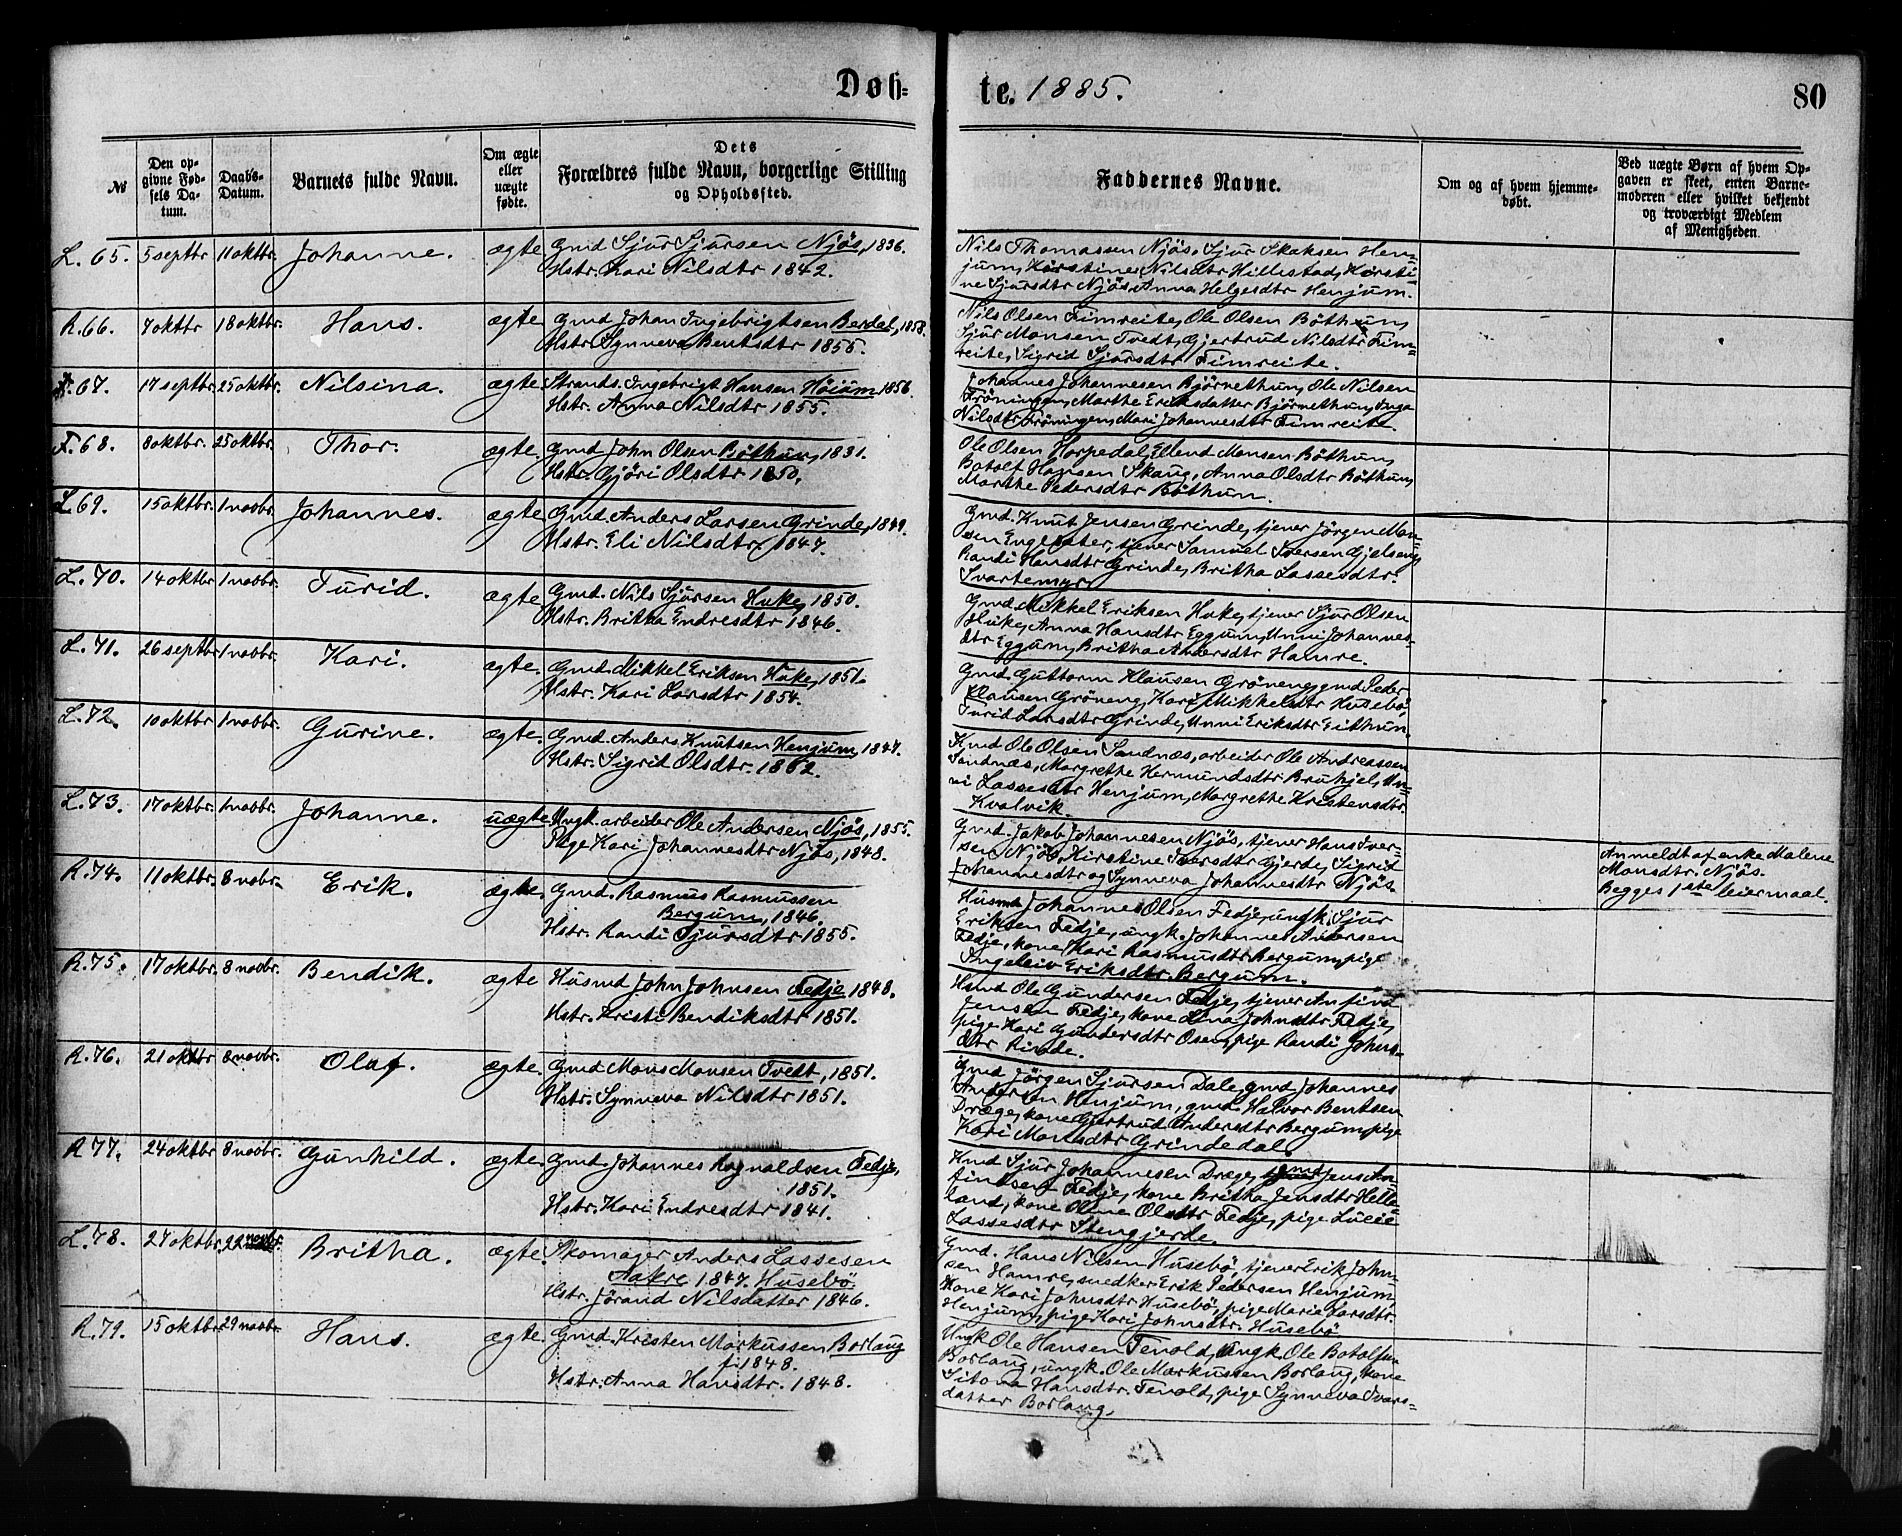 Døb=
te. 1885.
80
№
Den op-
givne Fød-
sels Da-
tum.
Daabs-
Datum.
Barnets fulde Navn.
Om ægte
eller
uægte
fødte.
Dets
Forældres fulde Navn, borgerlige Stilling
og Opholdssted.
Faddernes Navne.
Om og af hvem hjemme-
døbt.
Ved uægte Børn af hvem Op-
gaven er skeet, enten Barne-
moderen eller hvilket bekjendt
og troværdigt Medlem
af Menigheden.
L. 65. 5 septbr 11 oktbr. Johanne. ægte Gmd Sjur Sjursen Njøs, 1836.
Hstr. Kari Nilsdtr 1842.
Nils Thomassen Njøs, Sjur Skaksen Hen=
jum, Kirstine Nilsdtr Hillestad, Kirsti=
ne Sjursdtr Njøs, Anna Helgesdtr Henjum.
R. 66. 7 oktbr 18 oktbr. Hans. ægte Gmd Johan Ingebrigtsen Berdal, 1858.
Hstr. Synneva Bentsdtr 1855.
Nils Olsen Fimreite, Ole Olsen Bøthun,
Sjur Monsen Tvedt, Gjertrud Nilsdtr Fim=
reite, Sigrid Sjursdtr Fimreite.
67. 17 septbr. 25 oktbr. Nilsina. ægte Strands. Ingebrigt Hansen Høium, 1856.
Hstr. Anna Nilsdtr 1855.
Johannes Johannesen Bjørnethun, Ole Nilsen
Frøningen, Marthe Eriksdatter Bjørnethun, Inga
Nilsdtr Frøningen, Mari Johannesdtr Fimreite.
F. 68. 8 oktbr. 25 oktbr. Thor. ægte. Gmd John Olsen Bøthun, 1831.
Hstr. Gjøri Olsdtr 1850.
Ole Olsen Horpedal, Ellend Monsen Bøthun,
Botolf Hansen Skaug, Anna Olsdtr Bøthun,
Marthe Pedersdtr Bøthun.
L. 69. 15 oktbr. 1 novbr. Johannes. ægte Gmd. Anders Larsen Grinde, 1849.
Hstr. Eli Nilsdtr 1847.
Gmd. Knut Jensen Grinde, tjener Jørgen Mon-
sen Engesæter, tjener Samuel Iversen Gjelseng,
Randi Hansdtr Grinde, Britha Lassesdtr.
Svartemyr.
L. 70. 14 oktbr 1 novbr. Turid. ægte Gmd. Nils Sjursen Huke, 1850.
Hstr. Britha Endresdtr 1846.
Gmd. Mikkel Eriksen Huke, tjener Sjur Olsen
Huke, Anna Hansdtr Eggum, Unni Johannes-
dtr Eggum, Britha Andersdtr Hamre.
L. 71. 26 septbr 1 novbr. Kari. ægte. Gmd. Mikkel Eriksen Huke, 1851.
Hstr. Kari Larsdtr 1854.
Gmd. Guttorm Klausen Grøneng, gmd Peder
Klausen Grøneng, Kari Mikkelsdtr Husebø,
Turid Larsdtr Grinde, Unni Eriksdtr Eithun.
L. 72. 10 oktbr 1 novbr. Gurine. ægte. Gmd. Anders Knutsen Henjum, 1847.
Hstr. Sigrid Olsdtr. 1862.
Kmd Ole Olsen Sandnæs, arbeider Ole Andreassen
Sandnæs, Margrethe Hermundsdtr Bruhjel, Un-
ni Lassesdtr Henjum, Margrethe Kristensdtr.
Kvalvik.
L. 73. 17 oktbr. 1 novbr. Johanne. uægte. Ungk. arbeider Ole Andersen Njøs, 1855.
Pige Kari Johannesdtr Njøs, 1848.
Gmd. Jakob Johannesen Njøs, tjener Hans Iver-
sen Njøs, Kirstine Iversdtr Gjerde, Sigrid
Johannesdtr og Synneva Johannesdtr Njøs.
Anmeldt af enke Malene
Monsdtr. Njøs.
Begges 1ste leiermaal.
R. 74. 11 oktbr. 8 nobr. Erik. ægte. Gmd. Rasmus Rasmussen
Bergum, 1846.
Hstr. Randi Sjursdtr 1855.
Husmd Johannes Olsen Fedje, ungk. Sjur
Eriksen Fedje, ungk. Johannes Andersen
Fedje, kone Kari Rasmusdtr Bergum, pige
Ingeleiv Eriksdtr. Bergum.
R. 75. 17 oktbr. 8 novbr. Bendik. ægte Husmd John Johnsen Fedje 1848.
Hstr. Kristi Bendiksdtr 1851.
Hsmd Ole Gundersen Fedje, tjener Anfind
Jensen Fedje, kone Lina Johnsdtr Fedje,
pige Kari Gundersdtr Osen, pige Randi Johns-
dtr Rinde.
R. 76. 21 oktbr 8 novbr. Olaf. ægte. Gmd Mons Monsen Tvedt, 1851.
Hstr. Synneva Nilsdtr 1851.
Gmd Jørgen Sjursen Dale, gmd Johannes
Andersen Henjum, gmd. Halvor Bentsen
Dræge, kone Gjertrud Andersdtr Bergum, pige
Kari Monsdtr Grindedal.
R 77. 24 oktbr 8 novbr. Gunhild. ægte. Gmd. Johannes Ragnaldsen Fedje,
1851.
Hstr. Kari Endresdtr 1841.
Kmd Sjur Johannesen Dræge, gmd Jens An-
findsen Fedje, kone Britha Jensdtr Helle-
land, kone Oline Olsdtr Fedje, pige Lucie
Lassesdtr Stengjerde.
L. 78. 27 oktbr. 22 novbr. Britha. ægte. Skomager Anders Lassesen
Aakre 1847. Husebø.
Hstr. Jørand Nilsdatter 1846.
Gmd. Hans Nilsen Husebø, tjener Erik John-
sen Hamre, snedker Erik Pedersen Henjum,
Kone Kari Johnsdtr Husebø, pige Marie Larsdtr.
Henjum, pige Kari Johnsdtr. Husebø
R. 79. 15 oktbr. 29 novbr. Hans. ægte Gmd. Kristen Markussen Borlaug
f. 1848.
Hstr. Anna Hansdtr. 1848.
Ungk Ole Hansen Fenold, ungk. Ole Botolfsen
Borlaug, ungk. Ole Markussen Borlaug, kone
Hansdtr. Fenold, pige Synneva Ivars-
datter Borlaug.